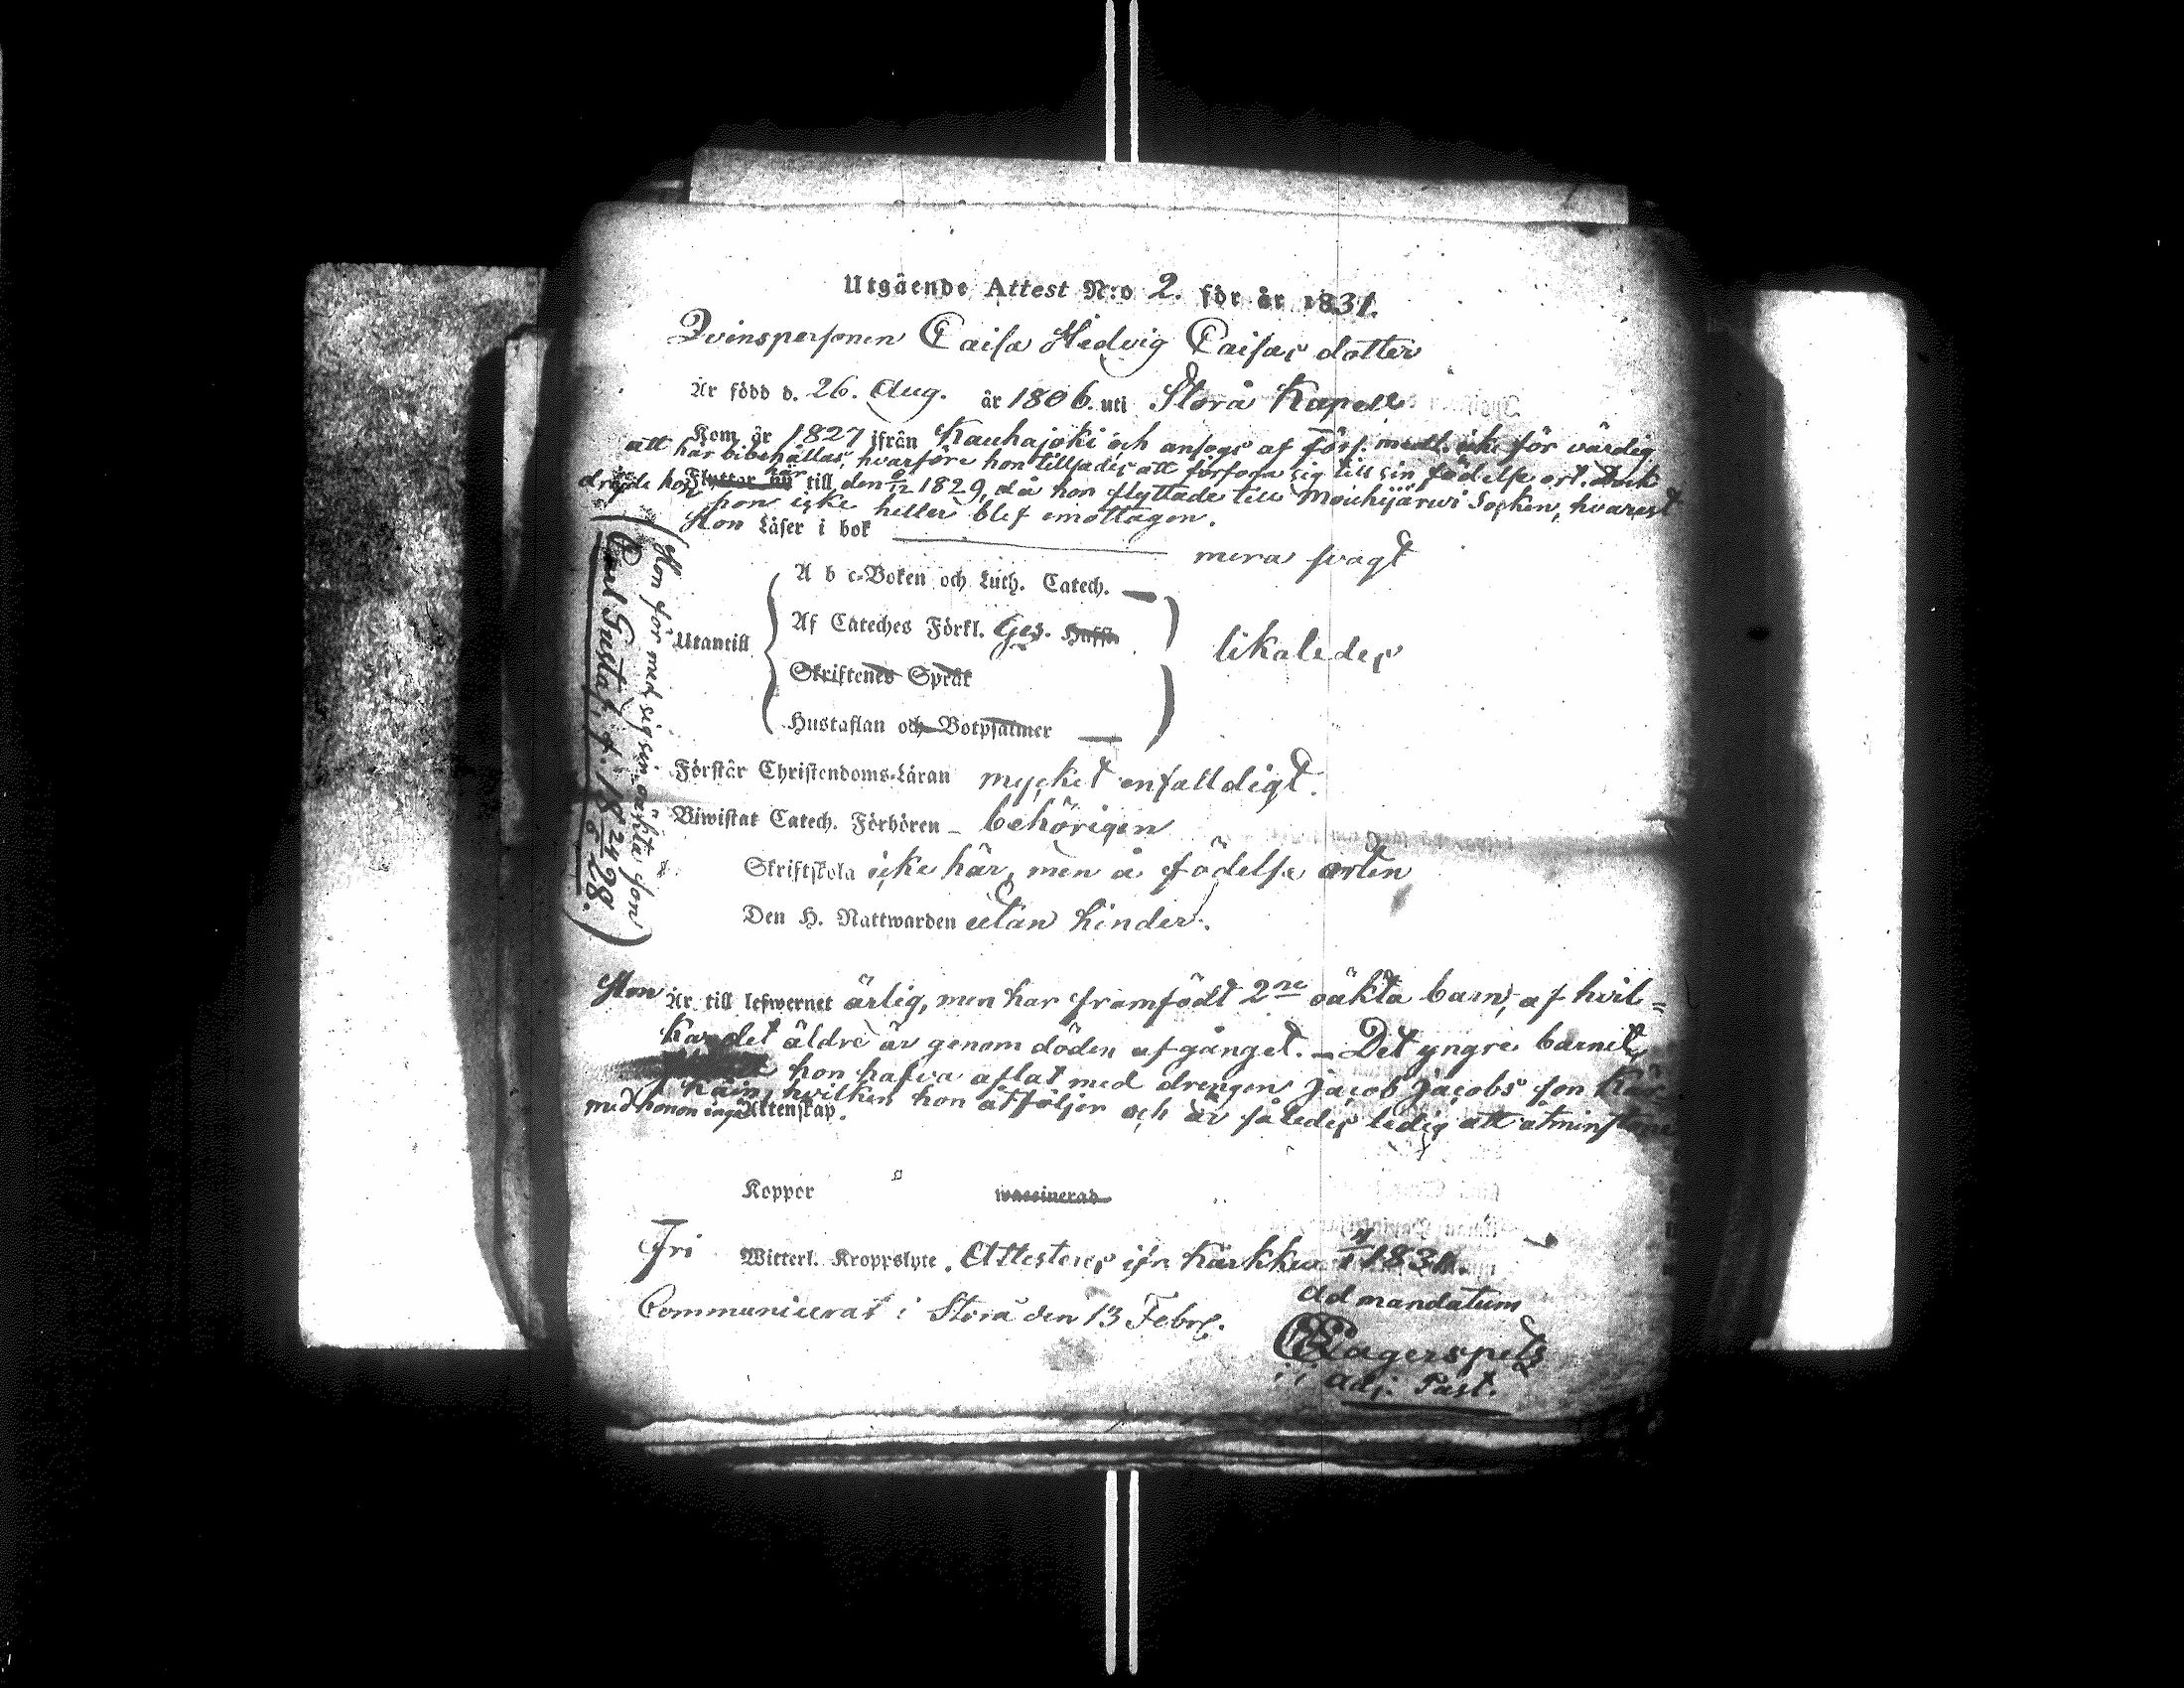 Utgående Attest N:o 2. för år 1831.
Qvinspersonen Caisa Hedvig Caisas dotter
Är född d. 26. Aug. år 1806. uti Storå Kapell
Kom år 1827 ifrån Kauhajoki och ansogs af Förs. medl. icke för värdig
att här bibehållas, hvarföre hon tillsades att förfoga sig till sin födelse ort. Dock
dröjde hon Flyttar nu här till den 6/12 1829, då hon flyttade till Mouhijärwi Socken, hvarest
hon icke heller blef emottagen.
Hon Läser i bok mera svagt
A b c-Boken och Luth. Catech.
Af Cateches Förkl. Gez.
Utantill likaledes
Skriftenes Språk
Hustaflan och Botpsalmer
Förstår Christendoms-Läran mycket enfalldigt.
Biwistat Catech. Förhören behörigen
Skriftskola icke här, men å födelse orten
Den H. Nattwarden utan hinder.
(Hon för med sig sin oäkta son
Carl Gustaf, f. 18 24/6 28.)
Hon Är till lefwernet ärlig, men har framfödt 2ne oäkta barn, af hvil=
ka det äldre är genom döden afgånget. Det yngre barnet
hon hafva aflat med drengen Jacob Jacobs son
hvilken hon åtföljer och är således ledig att åtminstone
med honom ingå Äktenskap.
Koppor wassinerad
Fri Witterl. Kroppslyte. Attesteres ifn Karkku 1831.
ad mandatum
Communicerat i Storå den 13 Febr.
Lagerspets
adj. Past.